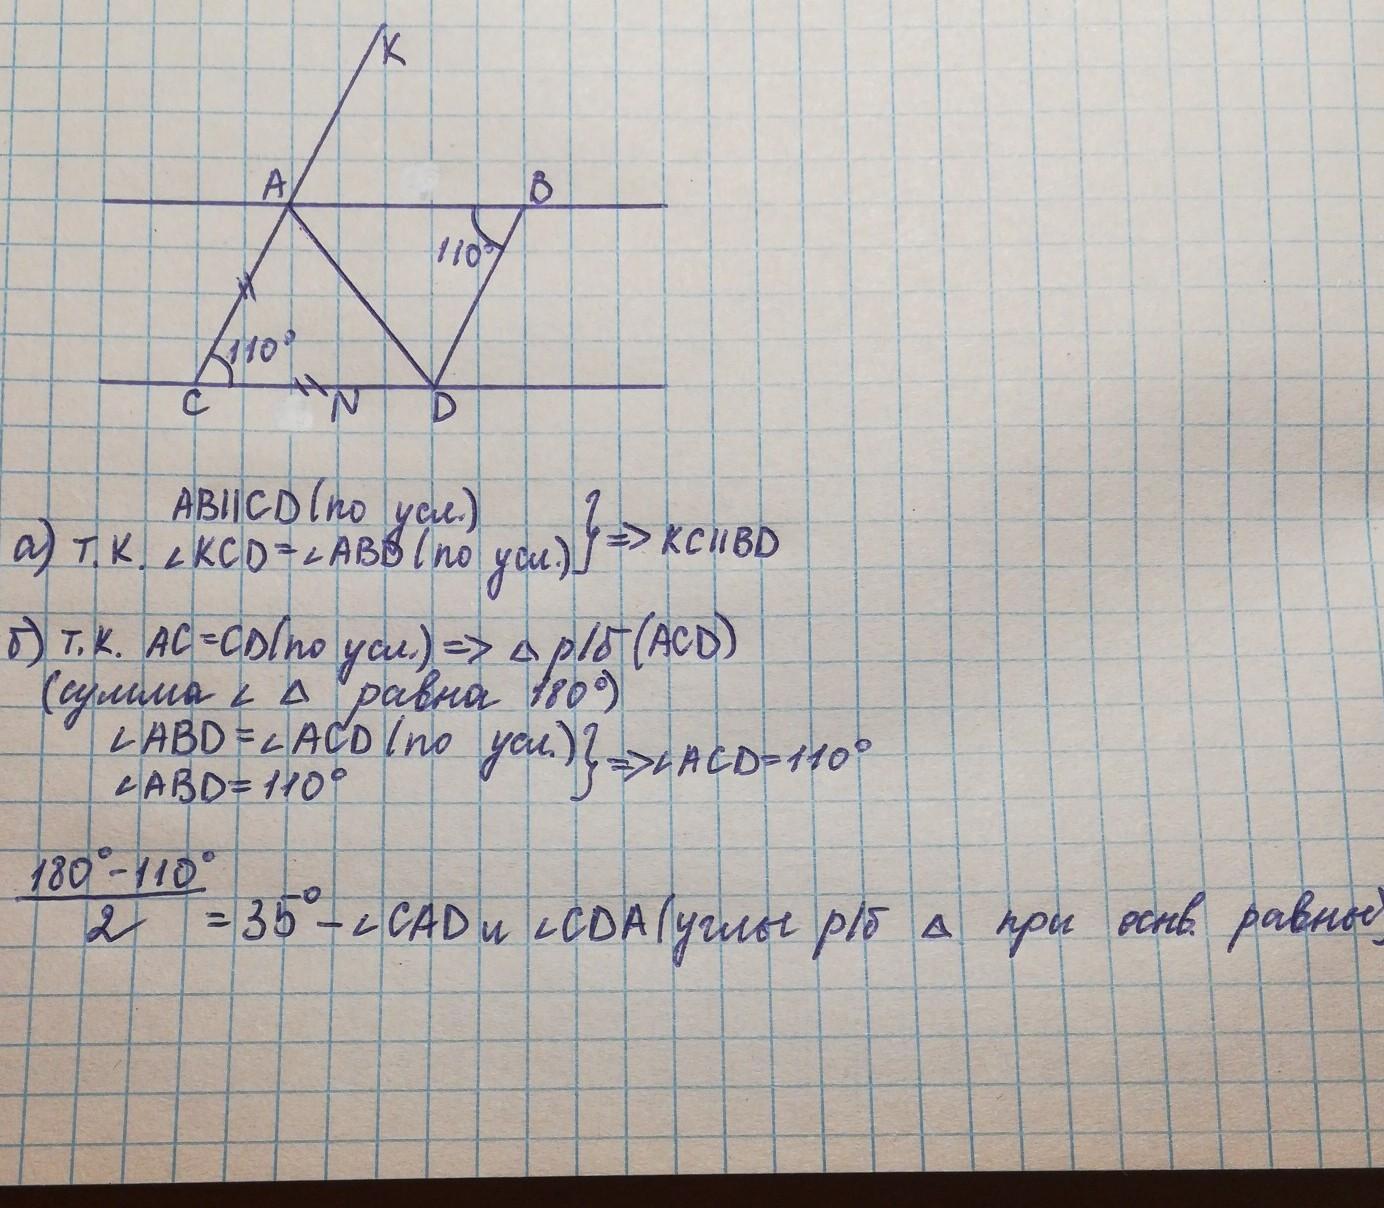 K
A
B
110°
110°
C
N
D
AB||CD (по усл.)
а) т.к. ∠KCD = ∠ABD (по усл.) } => KC||BD
б) т.к. AC = CD (по усл.) => Δ р/б (ACD)
(сумма ∠ Δ равна 180°)
∠ABD = ∠ACD (по усл.)
∠ABD = 110° } => ∠ACD = 110°
180° - 110°
2
= 35° - ∠CAD и ∠CDA (углы р/б Δ при осн. равны)